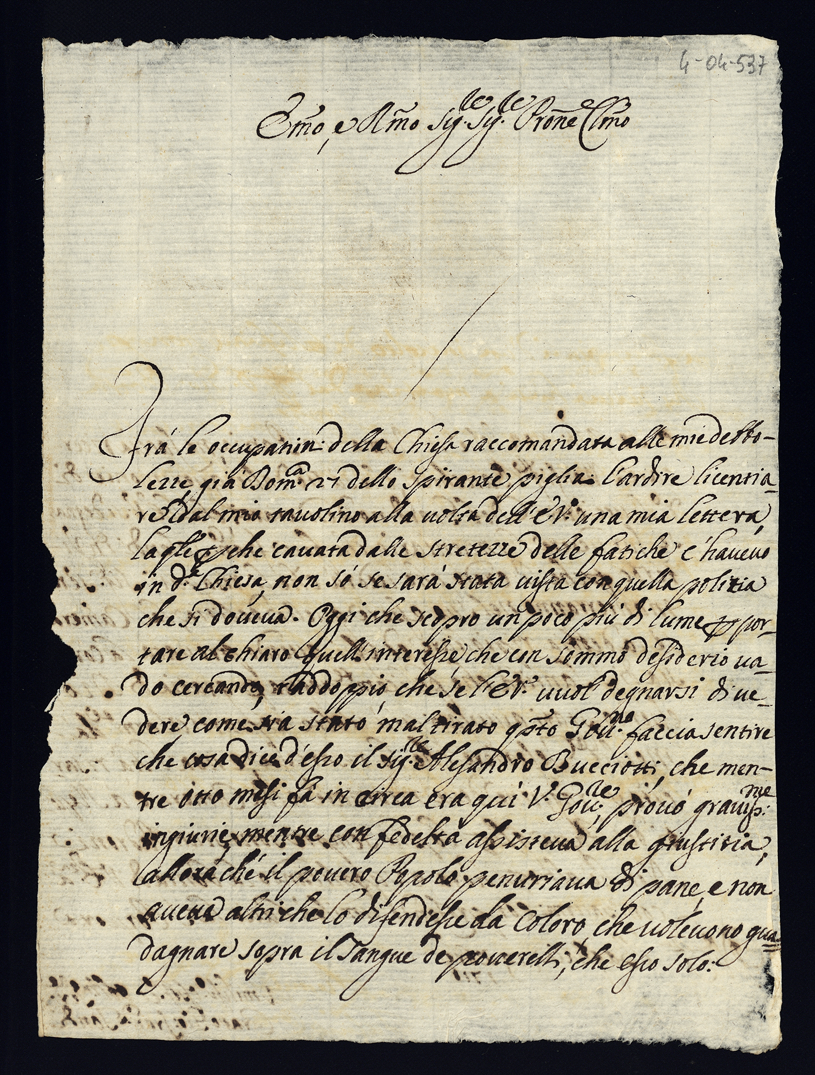 4-04-537
Emo, e Rmo Sig.re Sig.re Prone Clmo
Frà le occupatin: della Chiesa raccomandata alle mie debbo-
lezze, già Dom.ca 21 dello spirante pigliai l'ardire licentia-
re dal mio tavolino alla volta dell'E.V. una mia lettera,
la qle p che cavata dalle stretezze delle fatiche c'havevo
in d.a Chiesa, non sò se sarà stata vista con quella politia
che si doveva. Oggi che scopro un poco più di lume p por-
tare al chiaro quell'interesse, che con sommo desiderio va-
do cercando, raddoppio che se l'E.V. vuol degnarsi di ve-
dere come sia stato maltirato qsto Gov.no faccia sentire
che cosa dice d'esso il Sig.re Alesandro Bucciotti, che men-
tre otto mesi fà in circa era qui V. Gov.re, provò graviss.me
ingiurie, mentre con fedeltà assisteva alla giustitia,
allora ché il povero Popolo penuriava di pane, e non
aveva altri che lo difendesse da coloro che volevono gua-
dagnare sopra il Sangue de poverelli, che esso solo.